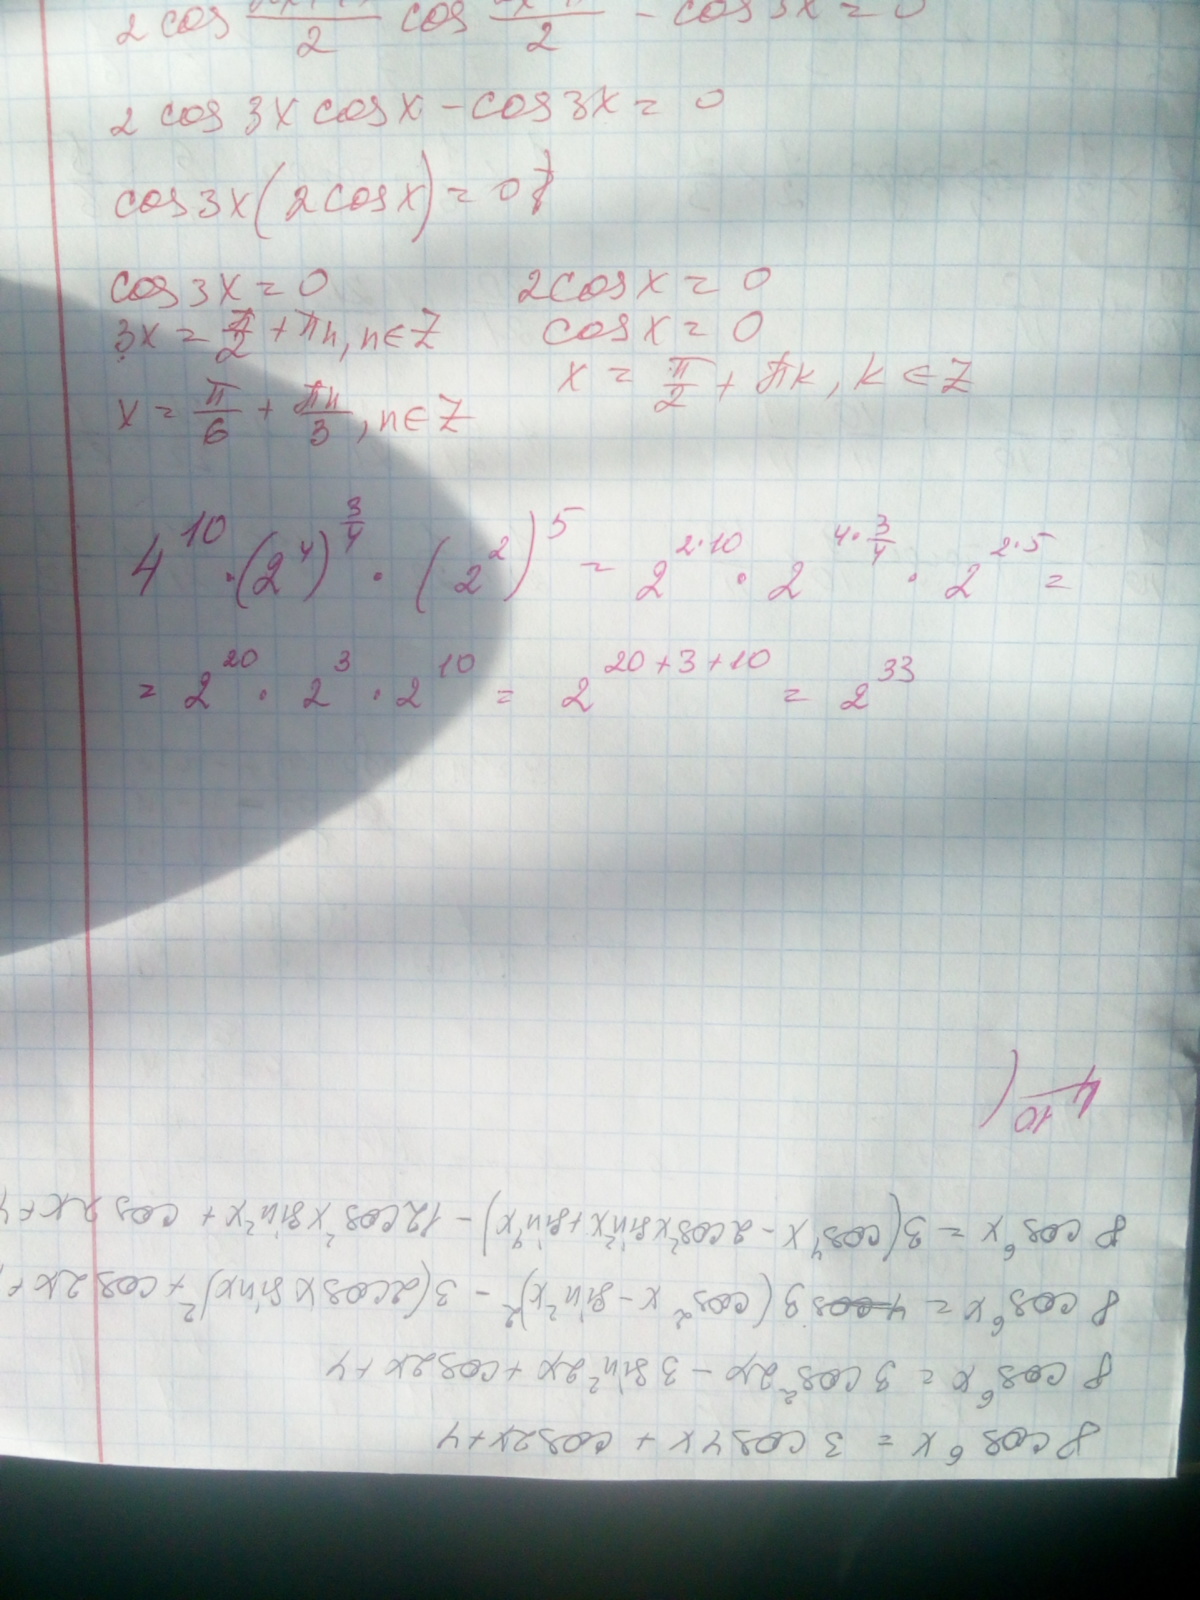 2 cos /2 cos /2 - cos 3x = 0
2 cos 3x cos x - cos 3x = 0
cos 3x (2 cos x) = 0
cos 3x = 0 2 cos x = 0
3x = π/2 + πn, n ∈ Z cos x = 0
x = π/6 + πn/3, n ∈ Z x = π/2 + πk, k ∈ Z
4^10 · (2^4)^(3/4) · (2^2)^5 = 2^(2·10) · 2^(4·3/4) · 2^(2·5) =
= 2^20 · 2^3 · 2^10 = 2^(20+3+10) = 2^33
8 cos^6 x = 3 cos 4x + cos 2x + 4
8 cos^6 x = 3 cos^2 2x - 3 sin^2 2x + cos 2x + 4
8 cos^6 x = 3 (cos^2 x - sin^2 x)^2 - 3 (2 cos x sin x)^2 + cos 2x +
8 cos^6 x = 3 (cos^4 x - 2 cos^2 x sin^2 x + sin^4 x) - 12 cos^2 x sin^2 x + cos 2x + 4
4^10 (